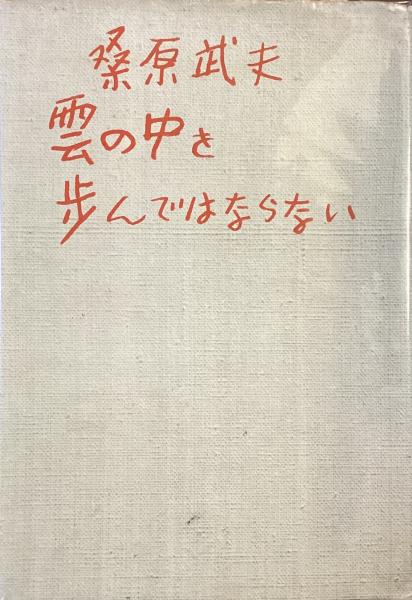 桑原武夫
雲の中を
歩んではならない